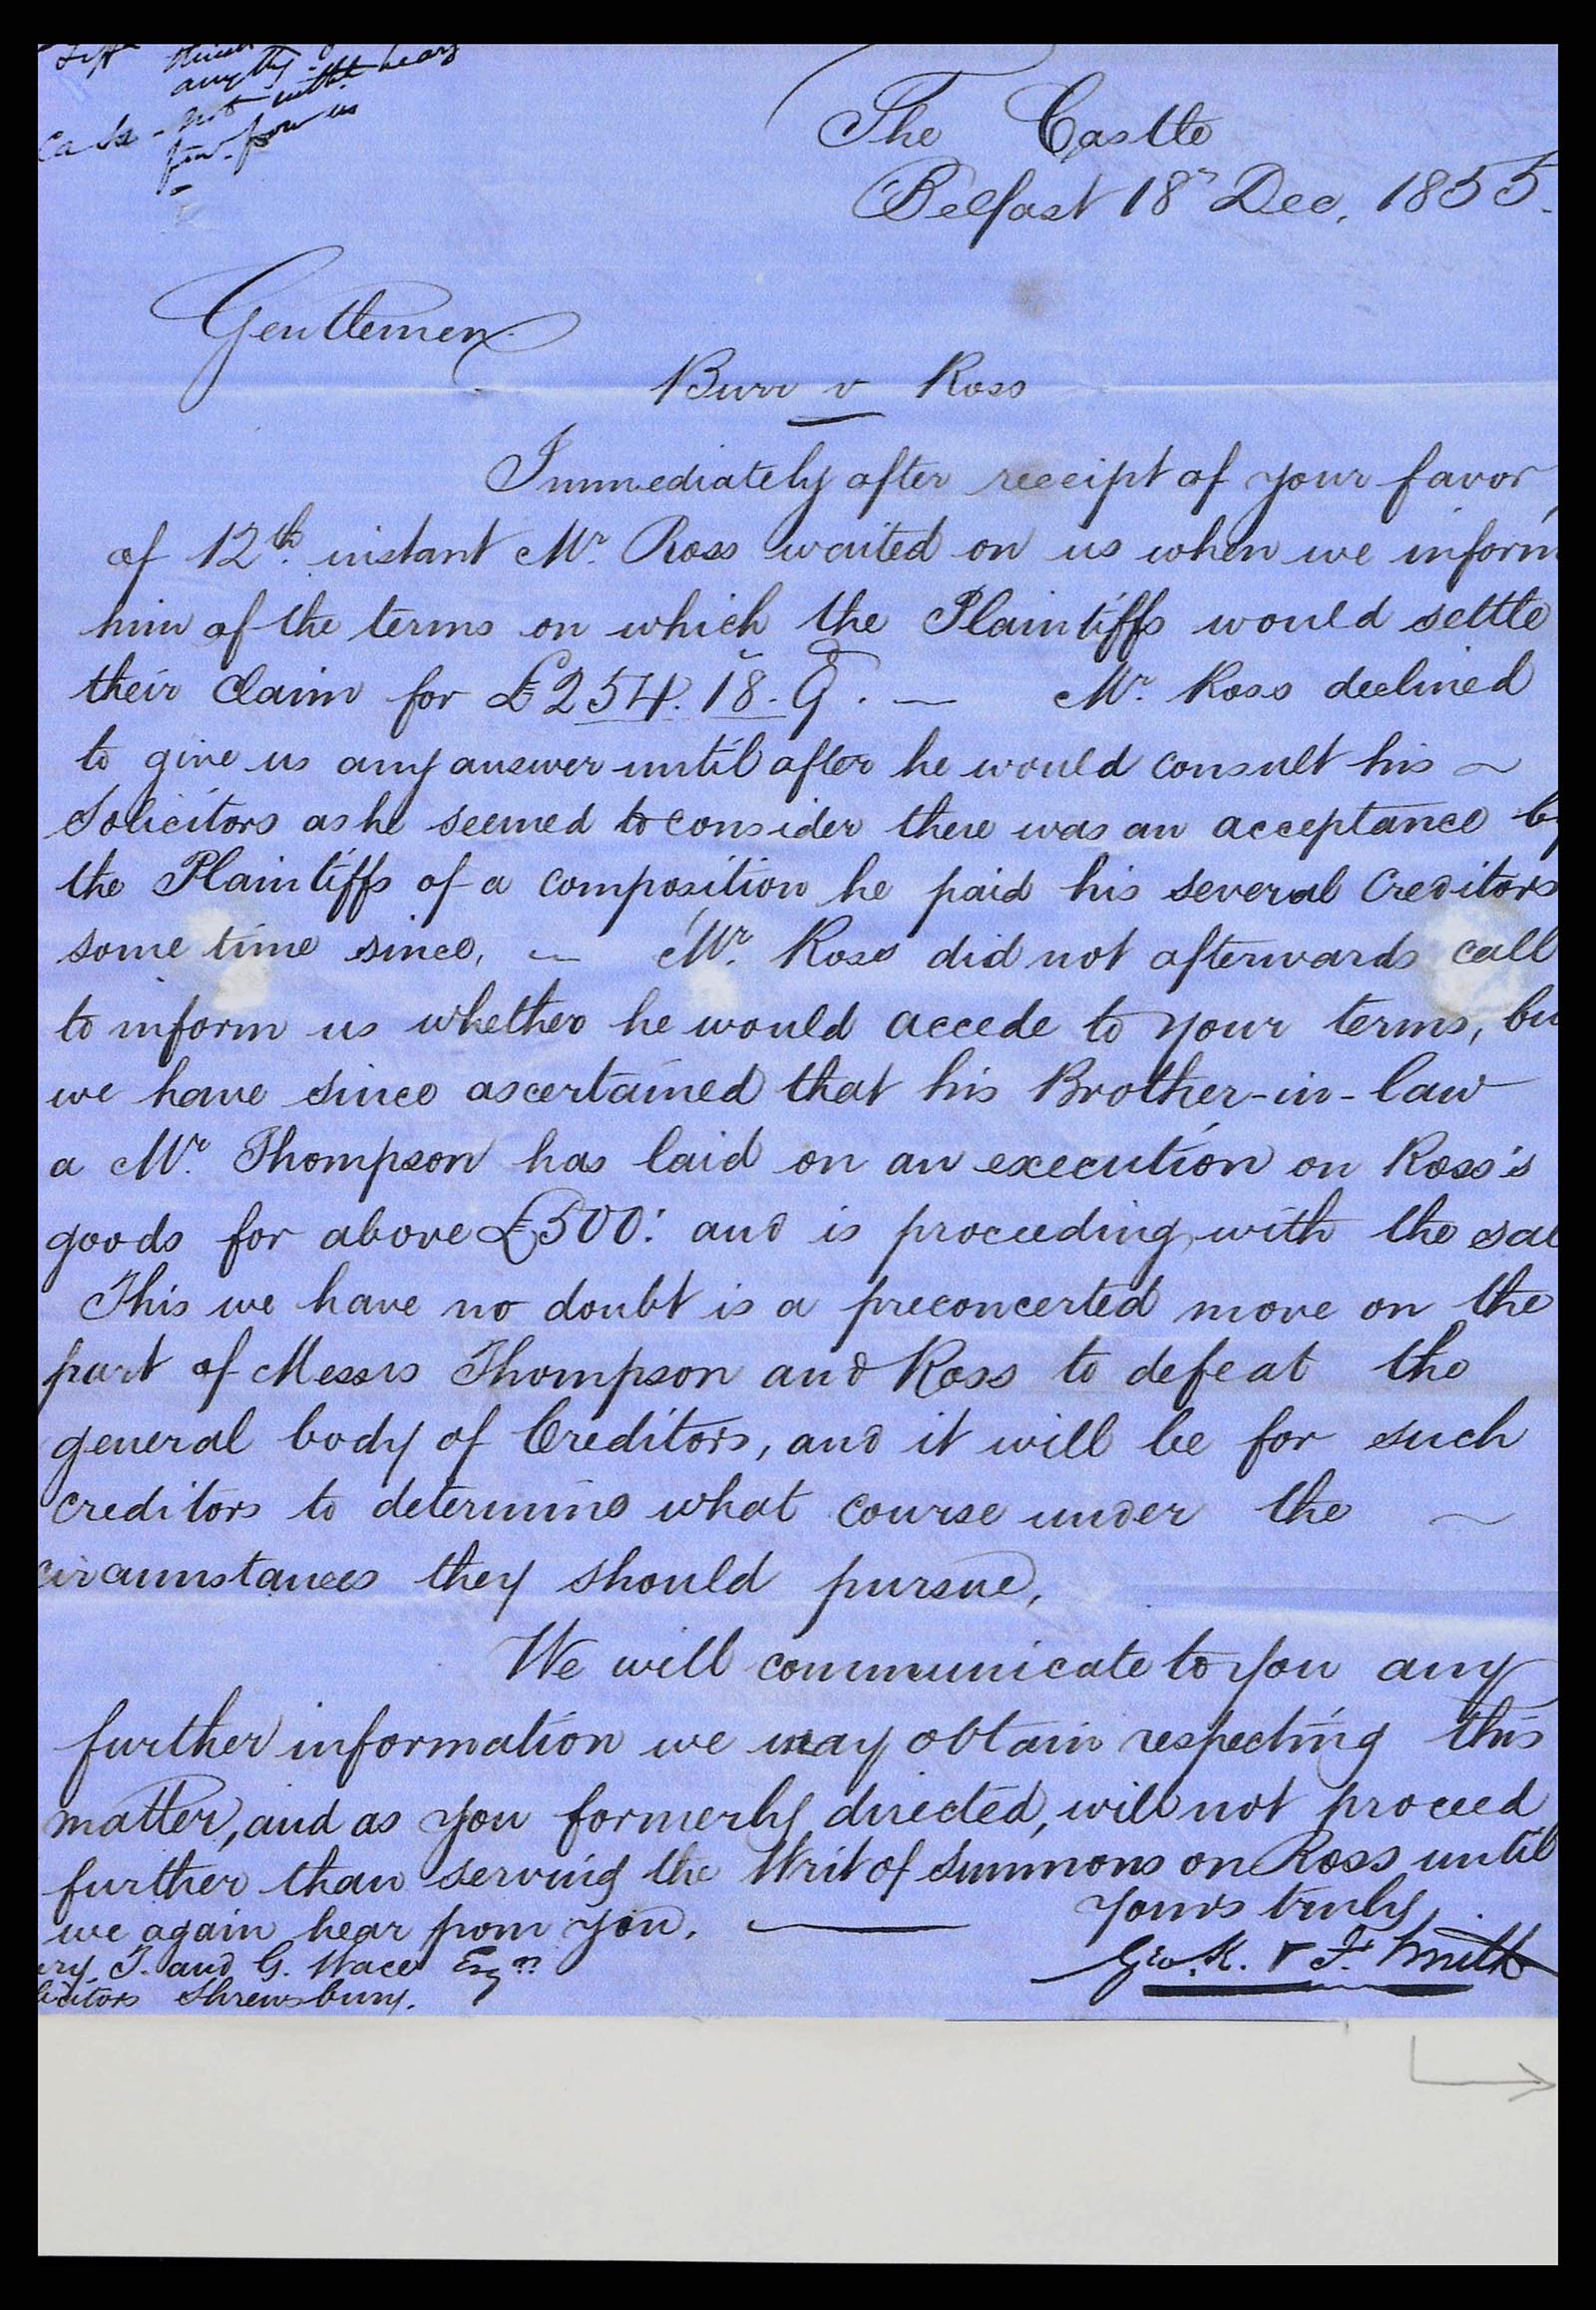 any thg
Ca Se - not - until hears
from us
The Castle
Belfast 18" Dec, 1855.
Gentlemen
Burr v Ross
Immediately after receipt of your favor
of 12th. instant Mr. Ross waited on us when we inform
him of the terms on which the Plaintiffs would settle
their claim for £254.18.9. — Mr. Ross declined
to give us any answer until after he would consult his ~
Solicitors as he seemed to consider there was an acceptance by
the Plaintiffs of a composition he paid his several Creditors
some time since, — Mr. Ross did not afterwards call
to inform us whether he would accede to your terms, bu
we have since ascertained that his Brother-in-law
a Mr. Thompson has laid on an execution on Ross's
goods for above £500: and is proceeding with the sal
This we have no doubt is a preconcerted move on the
part of Messrs Thompson and Ross to defeat the
general body of Creditors, and it will be for such
creditors to determine what course under the ~
circumstances they should pursue,
We will communicate to you any
further information we may obtain respecting this
matter, and as you formerly directed, will not proceed
further than serving the Writ of Summons on Ross until
we again hear from you. —
Yours truly,
Geo. K. & F. Smith
ry. T. and G. Wace Esqrs
licitors Shrewsbury.